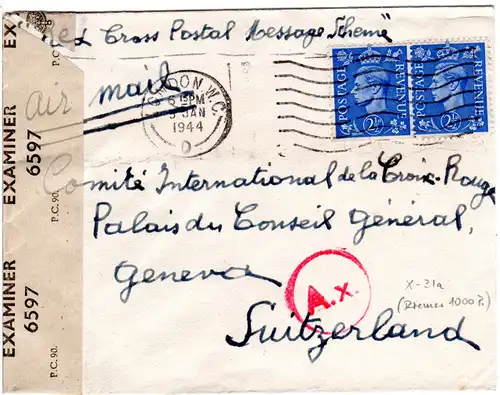 Red Cross Postal Message Scheme
air mail
LONDON. W.C.
6 15 PM
5 JAN
1944
D
POSTAGE REVENUE
2½
POSTAGE REVENUE
2½
Comité International de la Croix-Rouge
Palais du Conseil Général,
Geneva
Suitzerland
A.x.
X-31a
P.C. 90.
EXAMINER 6597
P.C. 90.
EXAMINER 6597
P.C. 90.